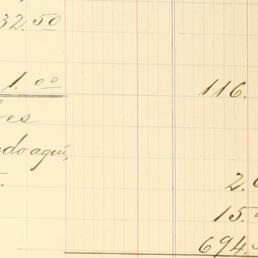 32.50
1.00 116.
es
doagui,
2.
15.
694.